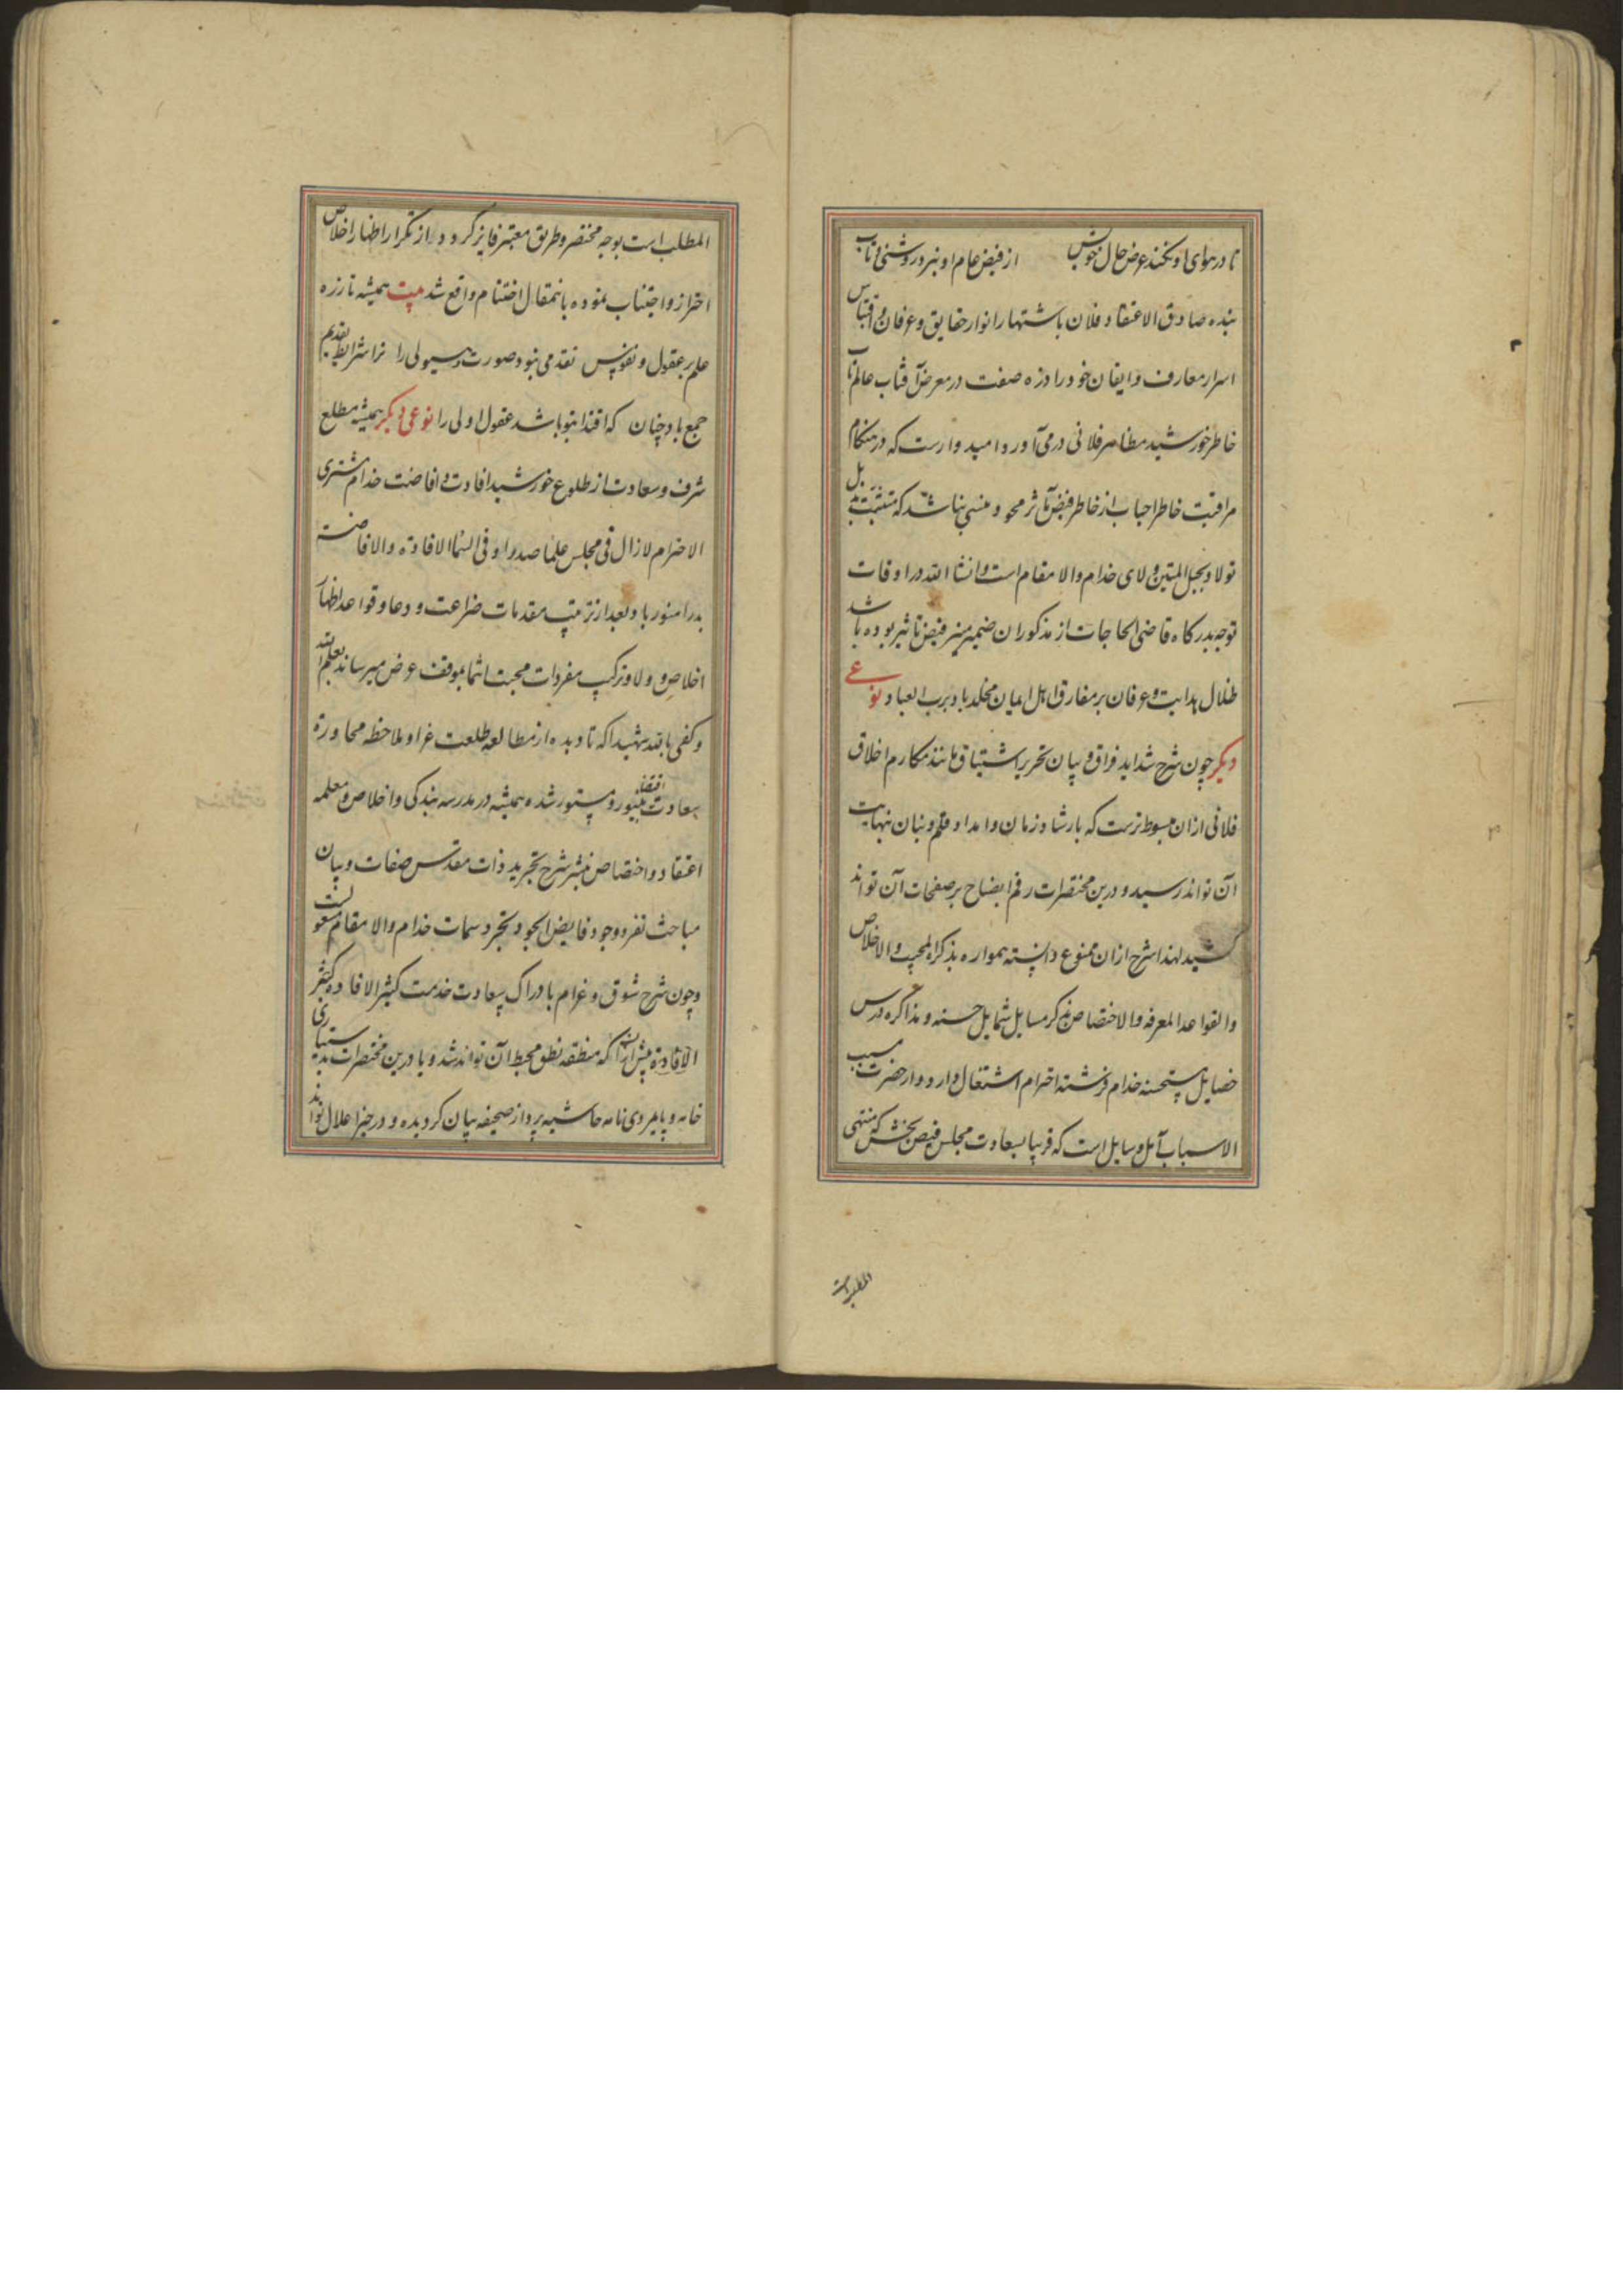 تا در هوای او نکند عرض حال خویش از فیض عام او نبرد روشنی و تاب
بنده صادق الاعتقاد فلان باشتهار انوار حقایق و عرفان و اقتباس
اسرار معارف و ایقان خود را ذره صفت در معرض آفتاب عالم تاب
خاطر خورشید مظاهر فلانی در می آورد و امیدوارست که در هنگام
مراقبت خاطر احباب از خاطر فیض مآثر محو و منسی نباشد که متشبث بذیل
تولا و بحبل المتین ولای خدام والا مقام است و انشا الله در اوقات
توجه بدرکاه قاضی الحاجات از مذکوران ضمیر منیر فیض تاثیر بوده باشد
ظلال هدایت و عرفان بر مفارق اهل ایمان مخلد باد برب العباد نوعی
دیکر چون شرح شداید فراق و بیان تحریر اشتیاق مانند مکارم اخلاق
فلانی ازان مبسوط ترست که بارشاد زمان و امداد قلم و بنان نهایت
آن تواند رسید و درین مختصرات رقم ایضاح بر صفحات آن تواند
کشید لهذا شرح ازان ممنوع دانسته همواره بذکر المحب والاخلاص
والقواعد المعرفه والاختصاص بذکر مسایل شمایل حسنه و مذاکره درس
خصایل مستحسنه خدام فرشته احترام اشتغال دارد و از حضرت مسبب
الاسباب آمل و سایل است که قریبا بسعادت مجلس فیض بخش که منتهی
المطلب است
المطلب است بوجه مختصر و طریق معتبر فایز کردد و از تکرار اظهار اخلاص
احتراز و اجتناب نموده باینمقال اختنام واقع شد بیت همیشه تا زره
علم بر عقول و نفوس تقدمی نبود صورت و هیولی را ترا شرایط تقدیم
جمع باد چنان که اقتدا بتو باشد عقول اولی را نوعی دیکر همیشه مطلع
شرف و سعادت از طلوع خورشید افادت و افاضت خدام مشتری
الاحترام لازال فی مجلس علما صدرا و فی السما الافادة والافاضة
بدرا منور باد و بعد از ترتیب مقدمات ضراعت و دعا و قواعد اظهار
اخلاص و ولا و ترکیب مفردات محبت انتما بموقف عرض میرساند یعلم الله
و کفی بالله شهیدا که تا دیده از مطالعه طلعت غرا و ملاحظه محاورة
سعادت اقتضا مهجور و مستور شده همیشه در مدرسه بندکی و اخلاص و معلمه
اعتقاد و اختصاص بنشر شرح تجرید ذات مقدس صفات و بیان
مباحث تفرد وجود فایض الجود و تجرد سمات خدام والا مقام مشغولست
و چون شرح شوق و غرام بادراک سعادت خدمت کثیر الافاده کثیر
الافاده بیش ازان که منطقه نطق محیط آن تواند شد و یا درین مختصرات بدستیاری
خامه و پایمردی نامه حاشیه پرداز صحیفه بیان کردیده و در حیز اعلال تواند